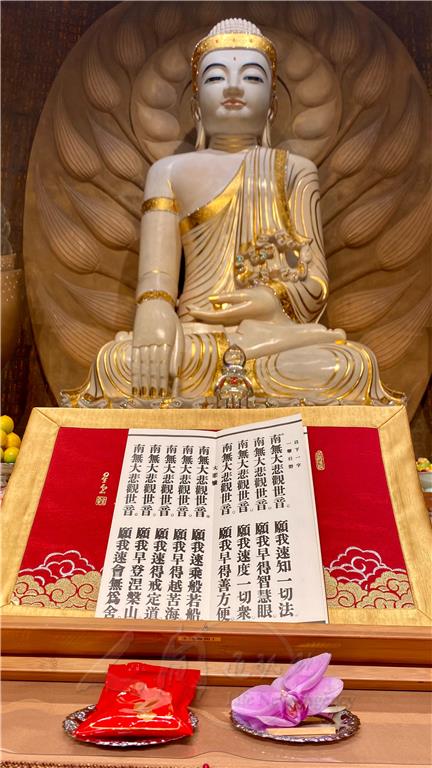 南無大悲觀世音。願我速知一切法
南無大悲觀世音。願我早得智慧眼
南無大悲觀世音。願我速度一切衆
南無大悲觀世音。願我早得善方便
大悲懺
南無大悲觀世音。願我速乘般若船
南無大悲觀世音。願我早得越苦海
南無大悲觀世音。願我速得戒定道
南無大悲觀世音。願我早登涅槃山
南無大悲觀世音。願我速會無爲舍